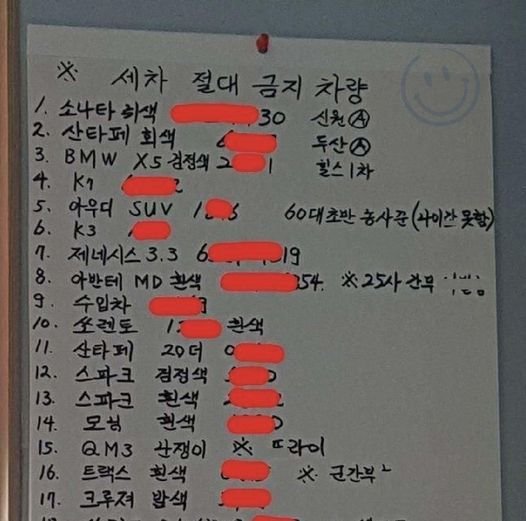 ※ 세차 절대 금지 차량
1. 소나타 회색 30 신원Ⓐ
2. 산타페 회색 두산Ⓐ
3. BMW X5 검정색 2 1 힐스 1차
4. K7
5. 아우디 SUV 1 6 60대초반 농사꾼 (사이간 못함)
6. K3
7. 제네시스 3.3 6 19
8. 아반테 MD 흰색 354. ※25사 간부
9. 수입차
10. 쏘렌토 1 흰색
11. 산타페 20더 0
12. 스파크 검정색
13. 스파크 흰색
14. 모닝 흰색
15. QM3 난쟁이 ※ 또라이
16. 트랙스 흰색 ※ 군간부
17. 크루져 밤색